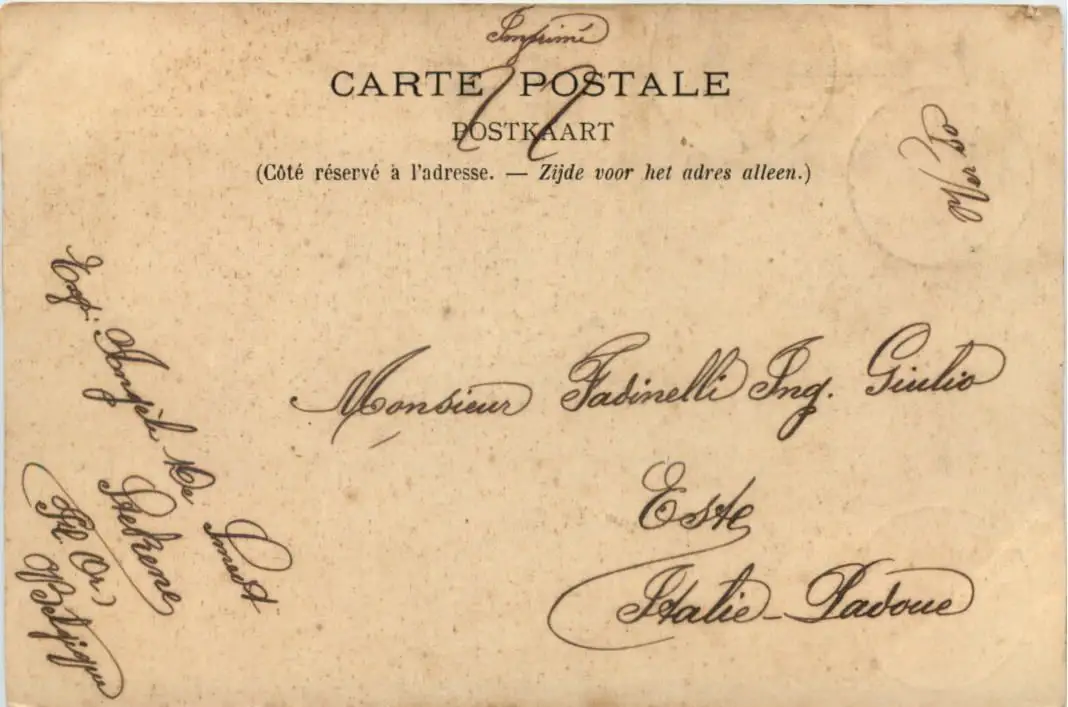 Imprimé
CARTE POSTALE
POSTKAART
(Côté réservé à l'adresse. — Zijde voor het adres alleen.)
Monsieur Fadinelli Ing. Giulio
Este
Italie - Padoue
Exp: Angèle De Smedt
Stekene
(Fl. Or.)
Belgique